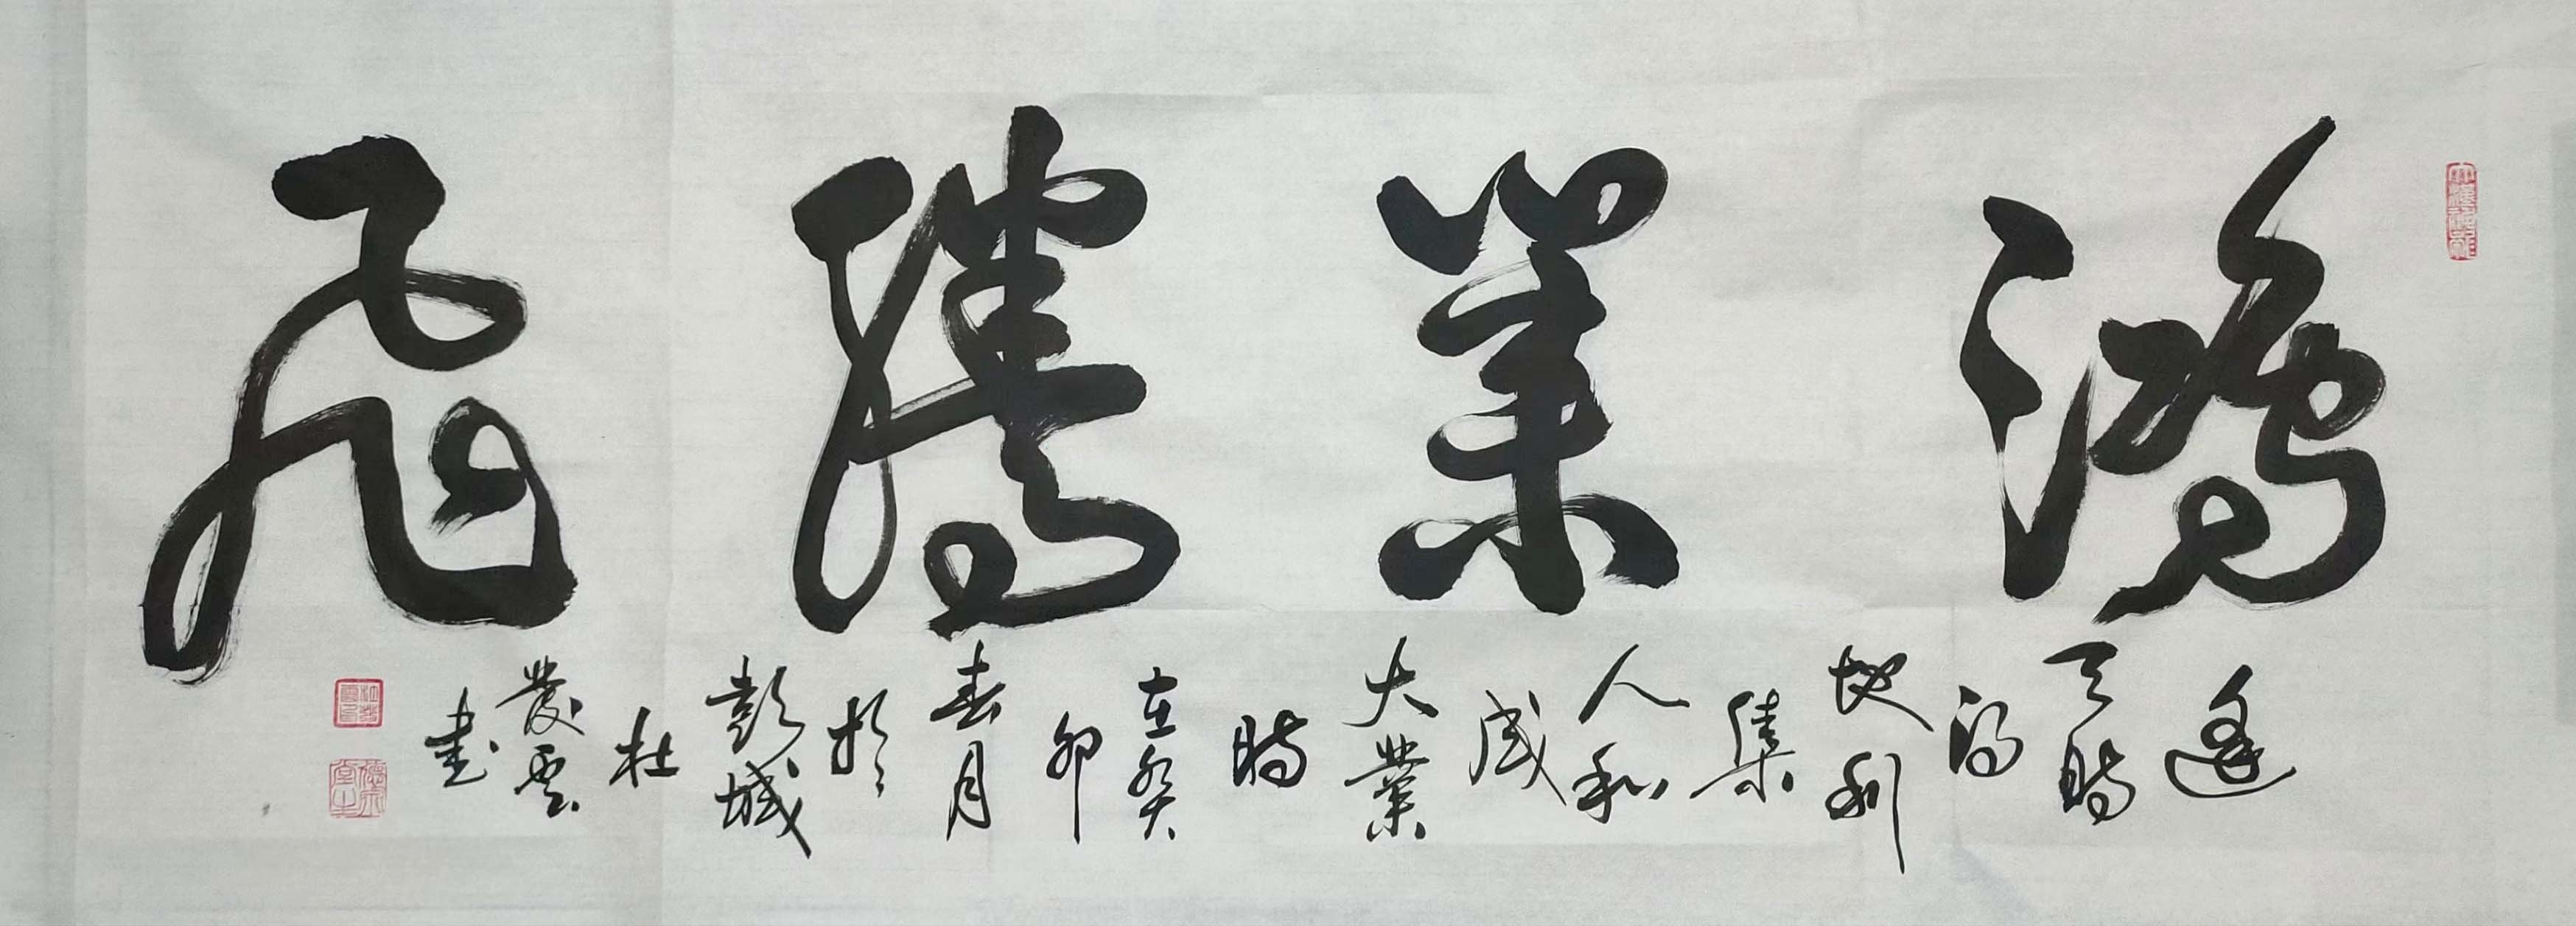 鴻業騰飛
逢天時得地利集人和成大業時在癸卯春月於彭城杜發雲書